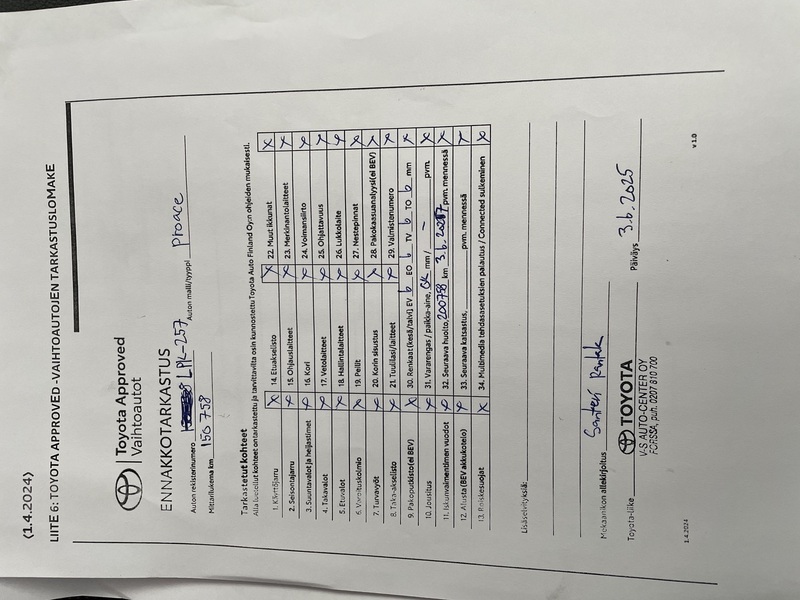 (1.4.2024)
LIITE 6: TOYOTA APPROVED -VAIHTOAUTOJEN TARKASTUSLOMAKE
Toyota Approved
Vaihtoautot
ENNAKKOTARKASTUS
Auton rekisterinumero LPK-257 Auton malli/tyyppi Proace
Mittarilukema km 150 758
Tarkastetut kohteet
Alla luetellut kohteet on tarkastettu ja tarvittavilta osin kunnostettu Toyota Auto Finland Oy:n ohjeiden mukaisesti.
1. Käyttöjarru X 14. Etuakselisto X 22. Muut ikkunat X
2. Seisontajarru X 15. Ohjauslaitteet X 23. Merkinantolaitteet X
3. Suuntavalot ja heijastimet X 16. Kori X 24. Voimansiirto X
4. Takavalot X 17. Vetolaitteet X 25. Ohjattavuus X
5. Etuvalot X 18. Hallintalaitteet X 26. Lukkolaite X
6. Varoituskolmio X 19. Peilit X 27. Nestepinnat X
7. Turvavyöt X 20. Korin sisustus X 28. Pakokaasuanalyysi(ei BEV) X
8. Taka-akselisto X 21. Tuulilasi/laitteet X 29. Valmistenumero X
9. Pakoputkisto(ei BEV) X 30. Renkaat(kesä/talvi) EV 6 EO 6 TV 6 TO 6 mm X
10. Jousitus X 31. Vararengas / paikka-aine, OK mm / - pvm. X
11. Iskunvaimentimen vuodot X 32. Seuraava huolto, 200758 km 3.6.2027 pvm. mennessä X
12. Alusta(BEV akkukotelo) X 33. Seuraava katsastus, pvm. mennessä X
13. Roiskesuojat X 34. Multimedia tehdasasetuksien palautus / Connected sulkeminen X
Lisäselvityksiä:
Mekaanikon allekirjoitus Santeri
Toyota-liike TOYOTA Päiväys 3.6.2025
V-S AUTO-CENTER OY
FORSSA, puh. 0207 810 700
1.4.2024 v 1.0